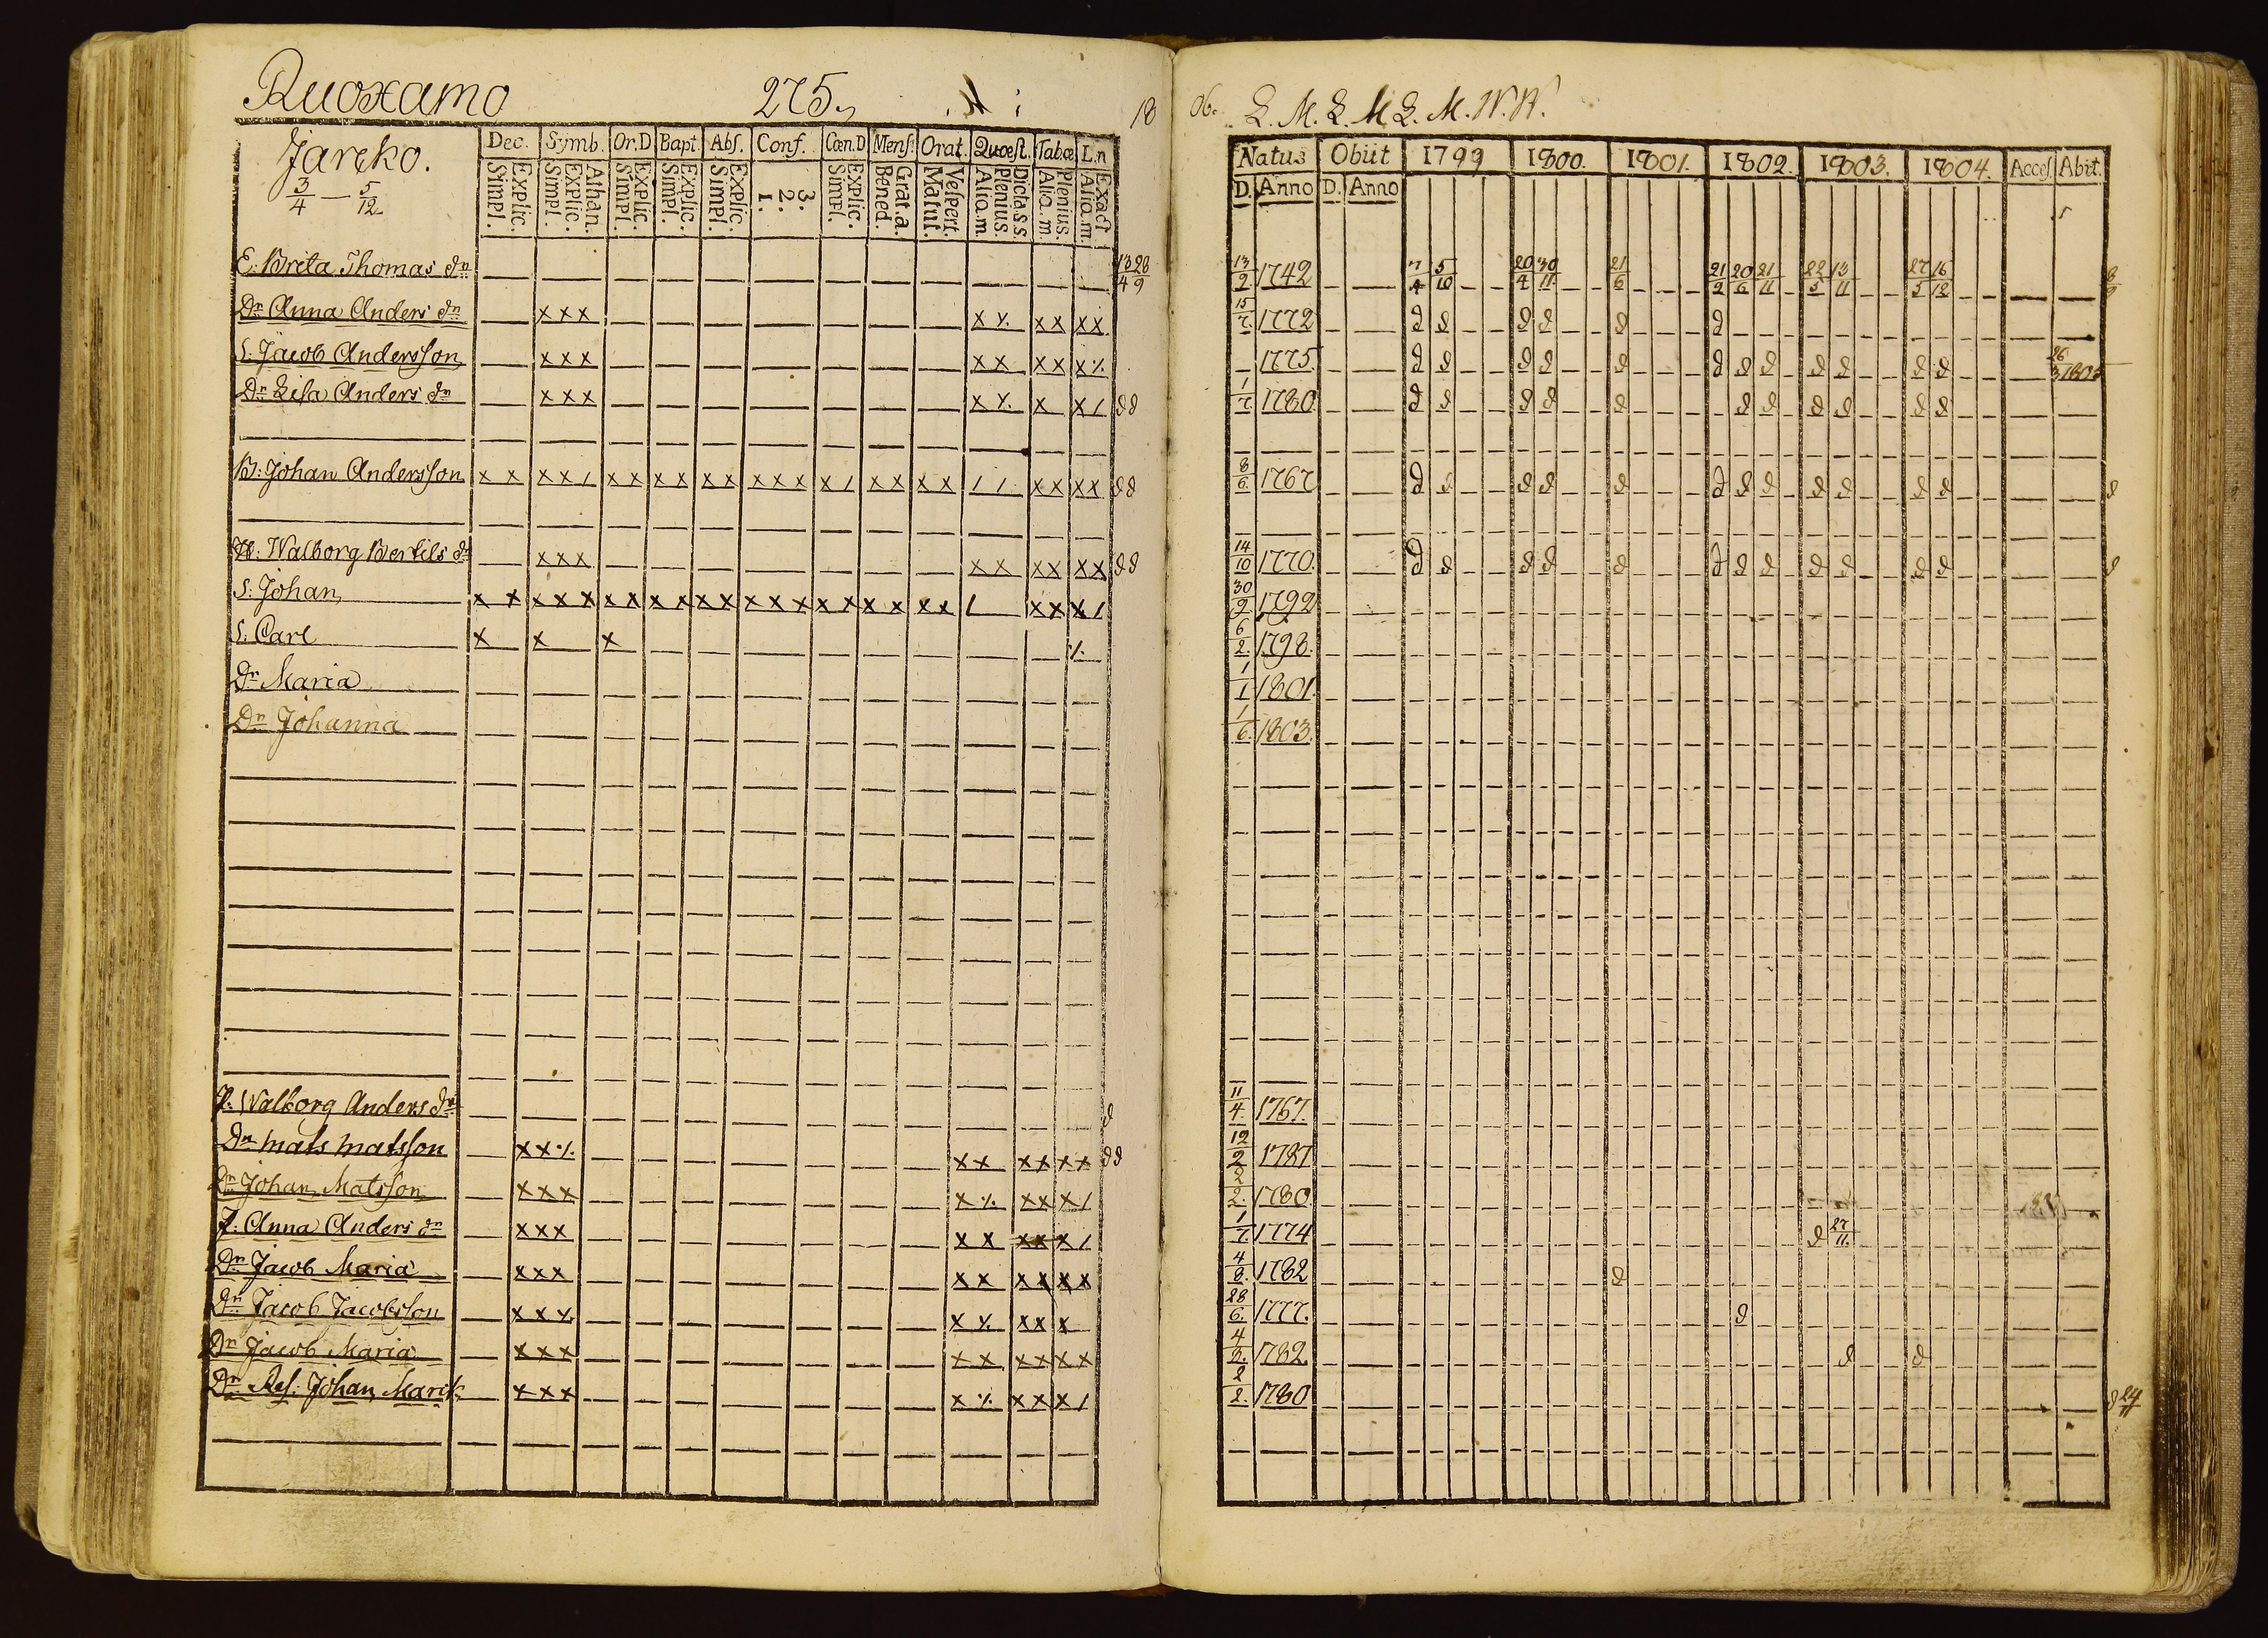 Ruoxamo 275.
Jareko.
3/4 — 5/12
Dec. Symb. Or.D Bapt. Abs. Conf. Cœn.D Mens. Orat. Quœst. Tabœ L.n
Explic. Simpl. Athan. Explic. Simpl. Explic. Simpl. Explic. Simpl. Explic. Simpl. 3. 2. 1. Explic. Simpl. Grat.a. Bened. Vespert. Matut. Dicta.s.s. Plenius. Alio.m. Plenius. Alio.m. Exact Alio.m.
E. Breta Thomas dr 13/4 28/9
Dr Anna Anders dr x x x x ⁒ x x x x
S. Jacob Andersson x x x x x x x x ⁒
Dr Lisa Anders dr x x x x ⁒ x x / d d
B: Johan Andersson x x x x / x x x x x x x x x x / x x x x / / x x x x d d
H: Walborg Bertils dr x x x x x x x x x d d
S: Johan x x x x x x x x x x x x x x x x x x x x / x x x /
S: Carl x x x ⁒
Dr Maria
Dr Johanna
Walborg Anders dr d
Dn Mats Matsson x x ⁒ x x x x x x d d
Dn Johan Matsson x x x x ⁒ x x x /
Anna Anders dr x x x x x x x x /
Dn Jacob Maria x x x x x x x x x
Dn Jacob Jacobsson x x ⁒ x ⁒ x x x
Dn Jacob Maria x x x x x x x x x
Dn Johan x x x x ⁒ x x x /
18
06. L. M. L. M. L. M. W. W.
Natus Obiit 1799 1800. 1801. 1802. 1803. 1804. Acces. Abit.
D. Anno D. Anno
13/9 1742 7/4 5/10 20/4 30/11 21/6 21/2 20/6 21/11 22/5 13/11 27/5 16/12
15/7 1772 d d d d d d
1775. d d d d d d d d d d d d 1805
1/7 1780 d d d d d d d d d d d
8/6 1767 d d d d d d d d d d d d d
14/10 1770. d d d d d d d d d d d d d
30/9 1792
6/2 1798.
1/1 1801.
1/6 1803.
11/4 1767.
12/2 1787
2/2 1780
1/7 1774 d 27/11
4/8 1782 d
28/6 1777. d
4/2 1782. d d
2/2 1780 d